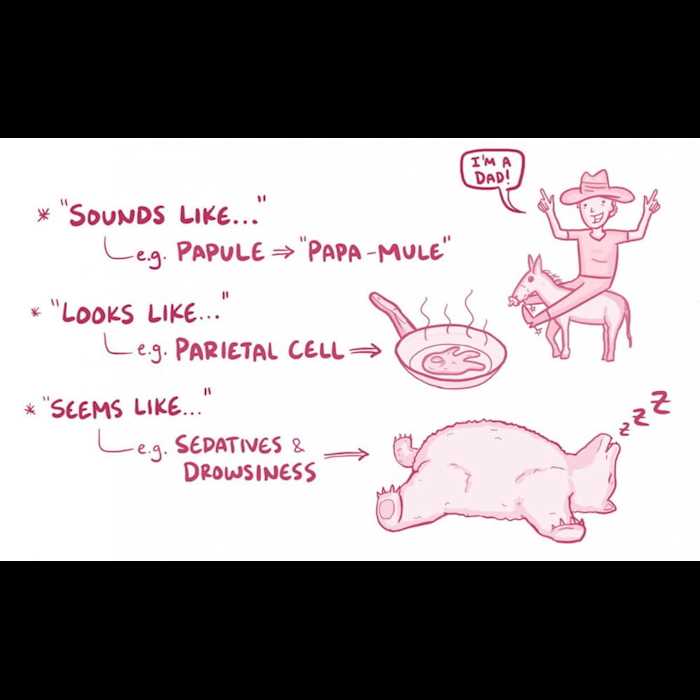 I'M A
DAD!
* "SOUNDS LIKE..."
e.g. PAPULE ⇒ "PAPA-MULE"
* "LOOKS LIKE..."
e.g. PARIETAL CELL ⇒
* "SEEMS LIKE..."
e.g. SEDATIVES &
DROWSINESS ⇒
z z z